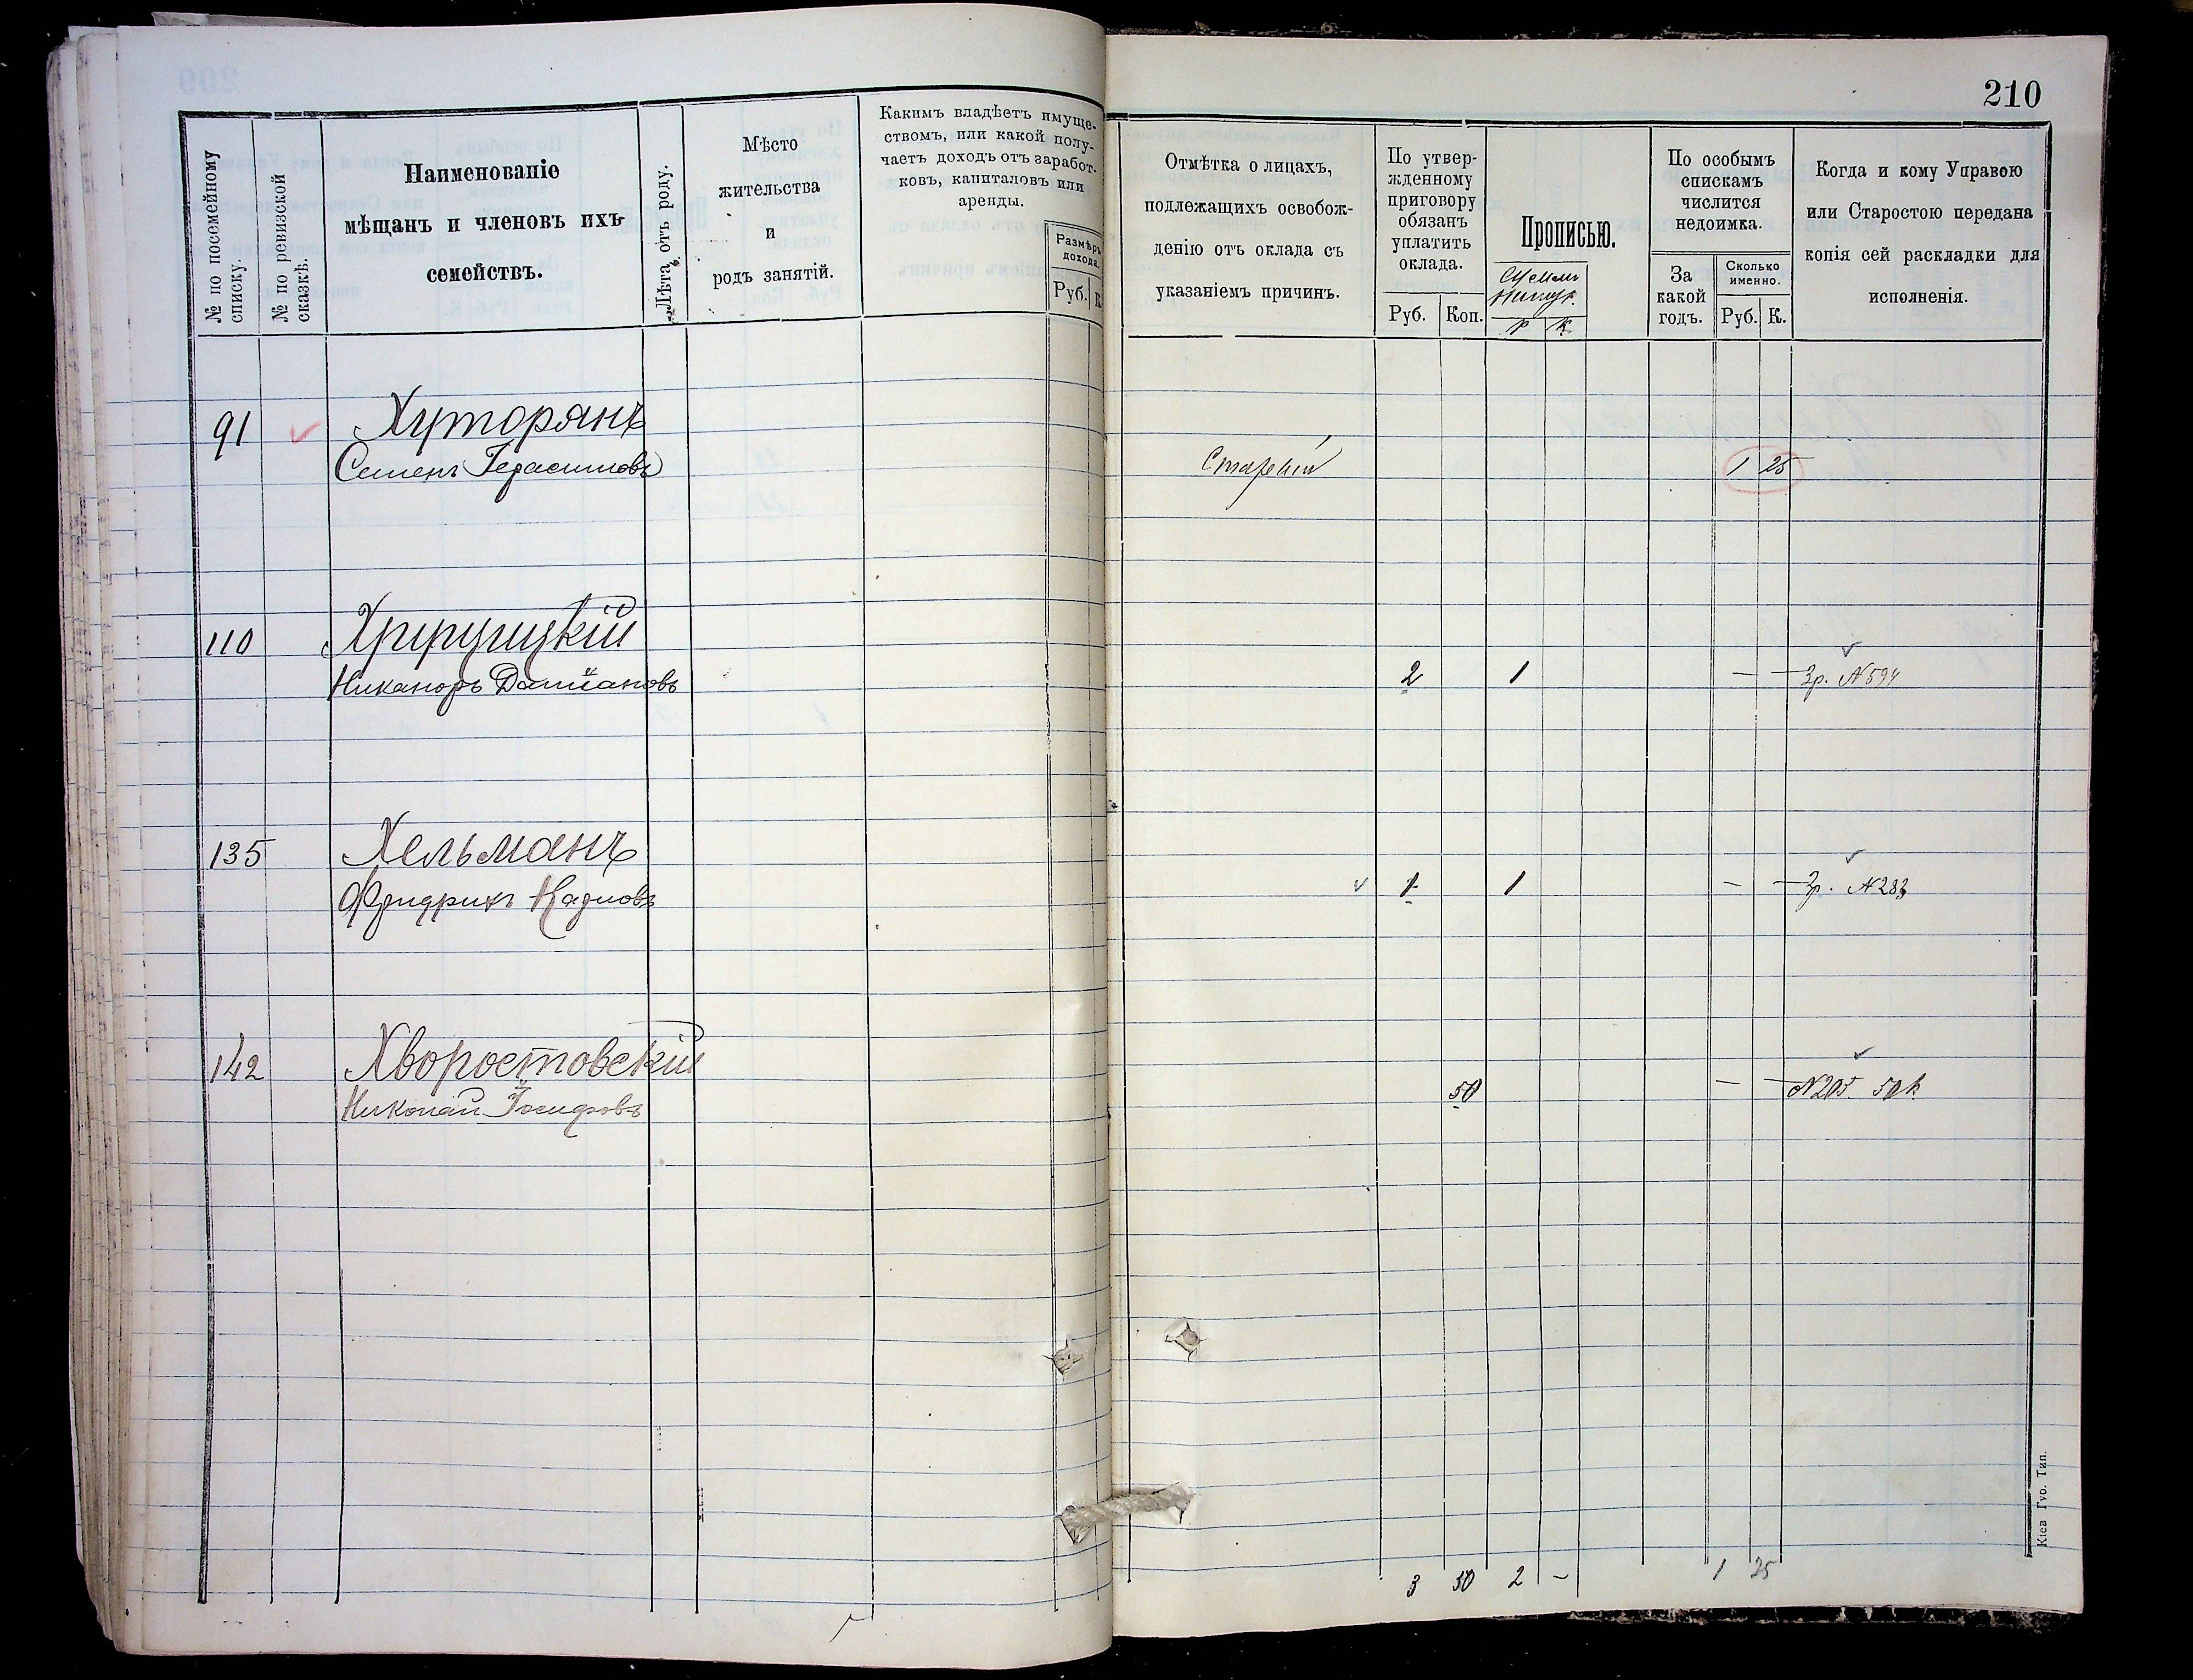 210
№ по посемейному
списку.
№ по ревизской
сказкѣ.
Наименованіе
мѣщанъ и членовъ ихъ
семействъ.
Лѣта отъ роду.
Мѣсто
жительства
и
родъ занятій.
Какимъ владѣетъ имуще-
ствомъ, или какой полу-
чаетъ доходъ отъ заработ-
ковъ, капиталовъ или
аренды.
Размѣръ
дохода.
Руб. К
Отмѣтка о лицахъ,
подлежащихъ освобож-
денію отъ оклада съ
указаніемъ причинъ.
По утвер-
жденному
приговору
обязанъ
уплатить
оклада.
Руб. Коп.
Прописью.
р к
По особымъ
спискамъ
числится
недоимка.
За
какой
годъ.
Сколько
именно.
Руб. К.
Когда и кому Управою
или Старостою передана
копія сей раскладки для
исполненія.
91 Хуторянъ
Семенъ Герасимовъ 1 25
110
Никаноръ Даміановъ 2 1 — — 3р. №594
135 Хельманъ
Фридрихъ 1 1 — — 2р. №283
142 Хворостовскій
Николай Іосифовъ 50 — — №205. 50к.
3 50 2 — 1 25
Кіев Губ. Тип.